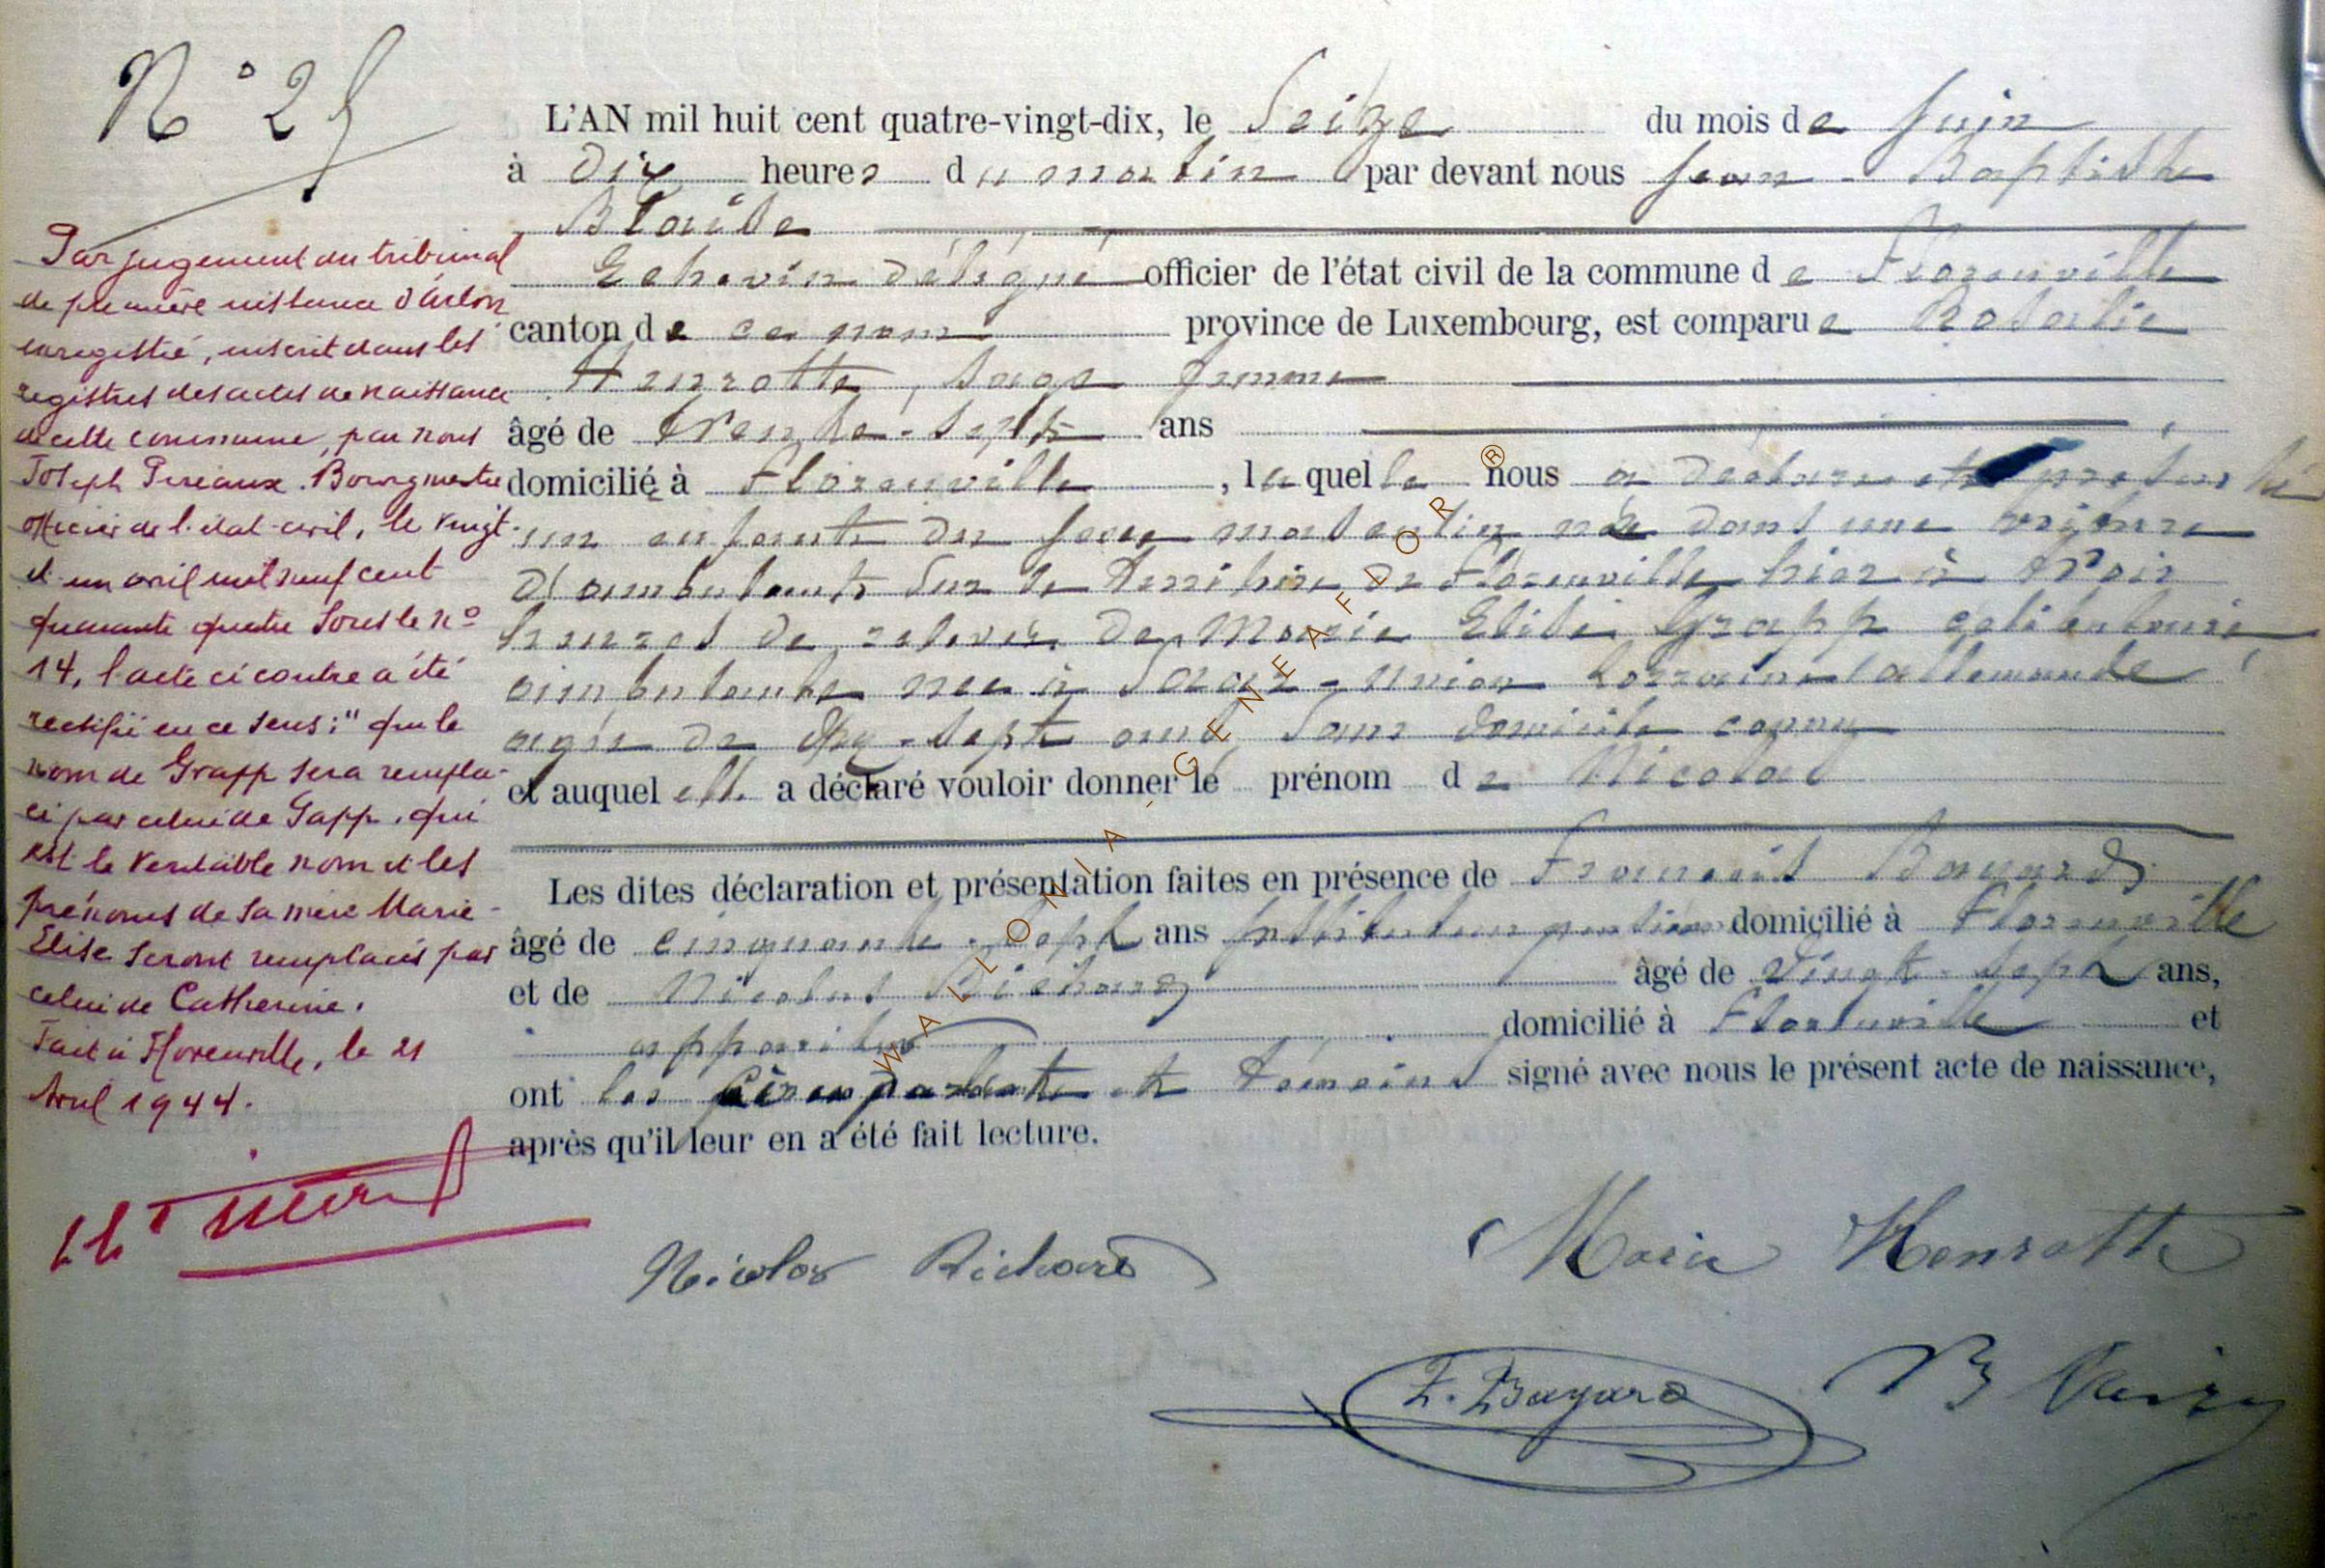 N° 25
L'AN mil huit cent quatre-vingt-dix, le Seize du mois de Juin
à Dix heures du matin par devant nous Jean-Baptiste
Blaise
Echevin délégué officier de l'état civil de la commune de Florenville
canton de ce nom province de Luxembourg, est comparue Rosalie
Henrotte, sage femme
âgé de trente-sept ans
domiciliée à Florenville, laquelle nous a déclaré et présenté
un enfant du sexe masculin né dans une voiture
d'ambulants sur le territoire de Florenville hier à trois
heures de relevée de Marie Elise Grapp célibataire
ambulante née à Saar-Union Lorraine allemande
agée de dix-sept ans, sans domicile connu
et auquel elle a déclaré vouloir donner le prénom de Nicolas
Les dites déclaration et présentation faites en présence de François Bayard
âgé de cinquante-sept ans Instituteur pensionné domicilié à Florenville
et de Nicolas Richard âgé de Vingt-sept ans,
appariteur domicilié à Florenville et
ont les comparante et témoins signé avec nous le présent acte de naissance,
après qu'il leur en a été fait lecture.
Par jugement du tribunal
de première instance d'Arlon
enregistré, inscrit dans les
registres des actes de naissance
de cette commune, par nous
Joseph Bourgmestre
officier de l'état-civil, le vingt-
et-un avril mil neuf cent
quarante quatre sous le n°
14, l'acte ci contre a été
rectifié en ce sens : " que le
nom de Grapp sera rempla-
cé par celui de Gapp, qui
est le véritable nom et les
prénoms de sa mère Marie-
Elise seront remplacés par
celui de Catherine.
Fait à Florenville, le 21
Avril 1944.
Nicolas Richard
Marie Henrotte
F. Bayard
WALLONIA - GENEAFLOR ®